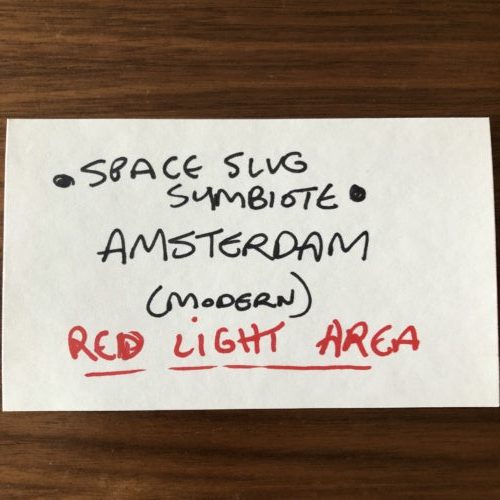 • SPACE SLUG
SYMBIOTE •
AMSTERDAM
(MODERN)
RED LIGHT AREA